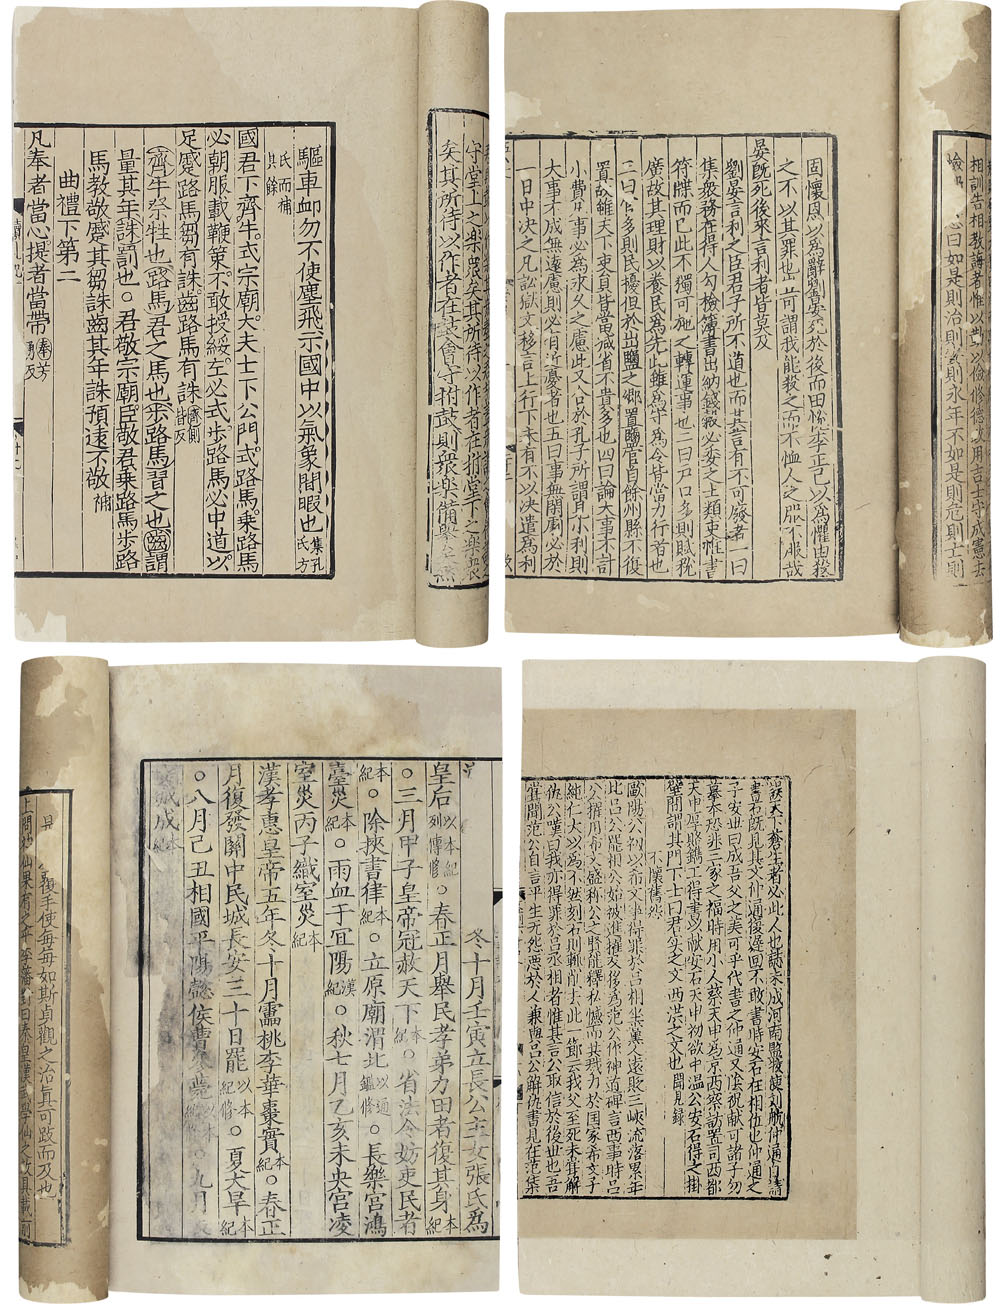 驅車䘏勿不使塵飛示國中以氣象閒暇也集孔氏方
氏而補
其餘
國君下齊牛式宗廟大夫士下公門式路馬乘路馬
必朝服載鞭策不敢授綏左必式步路馬必中道以
足蹙路馬芻有誅齒路馬有誅
齊牛祭牲也路馬君之馬也步路馬習之也齒謂
量其年誅罰也○君敬宗廟臣敬君乘路馬步路
馬教敬蹙其芻誅齒其年誅預遠不敬補
曲禮下第二
凡奉者當心提者當帶奉芳勇反
守堂上之樂衆矣其所待以作者在拊堂下之樂衆
矣其所待以作者在鼓會守拊鼓則衆樂備舉
相訓告相教誨者惟以勤以儉修德政用吉士守成憲去
曰如是則治則安則永年不如是則危則亡則
固懷恩以爲辭劉晏死於後而田悅李正己以爲懼由殺
之不以其罪也豈可謂我能殺之而不恤人之服不服哉
晏既死後來言利者皆莫及
劉晏言利之臣君子所不道也而其言有不可廢者一曰
集衆務在得人勾檢簿書出納錢穀必委之士類吏惟書
符牒而已此不獨可施之轉運事也二曰戶口多則賦稅
廣故其理財以養民爲先此雖爲守爲令皆當力行者也
三曰官多則民擾但於出鹽之鄉置鹽官自餘州縣不復
置故雖天下吏員皆當減省不貴多也四曰論大事不計
小費凡事必爲永久之慮此又合於孔子所謂見小利則
大事不成無遠慮則必有近憂者也五曰事無閑劇必於
一日中決之凡訟獄文移言上行下未有不以決遣爲利
冬十月壬寅立長公主女張氏爲
皇后以本紀列傳修○春正月舉民孝弟力田者復其身本紀
○三月甲子皇帝冠赦天下本紀○省法令妨吏民者
本紀○除挾書律本紀○立原廟渭北以通鑑修○長樂宮鴻
臺災本紀○雨血于宜陽漢紀○秋七月乙亥未央宮凌
室災丙子織室災本紀
漢孝惠皇帝五年冬十月雷桃李華棗實本紀○春正
月復發關中民城長安三十日罷以本紀修○夏大旱本紀
○八月己丑相國平陽懿侯曹參薨○九月長
安城成本紀
復手使每每如斯貞觀之治眞可跂而及也
天下蒼生者必此人也誌未成河南監牧使劉航仲通自請
書石既見其文仲通復遲回不敢書時安石在相位也仲通之
子安世曰成吾父之美可乎代書之仲通又陰祝獻可諸子勿
摹本恐非三家之福時用小人蔡天申爲京西察訪置司西都
天申厚賂鐫工得本以獻安石天申初欲中溫公安石得之掛
壁間謂其門下士曰君實之文西漢之文也聞見錄
不懷舊怨
歐陽公初以希文事得罪於呂相坐黨人遠貶三峽流落累年
比呂公罷相公始被進擢及後爲范公作神道碑言西事時呂
公擢用希文盛稱公之賢能釋私憾而共戮力於國家希文子
純仁大以爲不然刻石則輒削去此一節云我父至死未嘗解
仇公嘆曰我亦得罪於呂丞相者惟其言公取信於後世也吾
嘗聞范公自言平生無怨惡於人兼與呂公解仇書見在范集